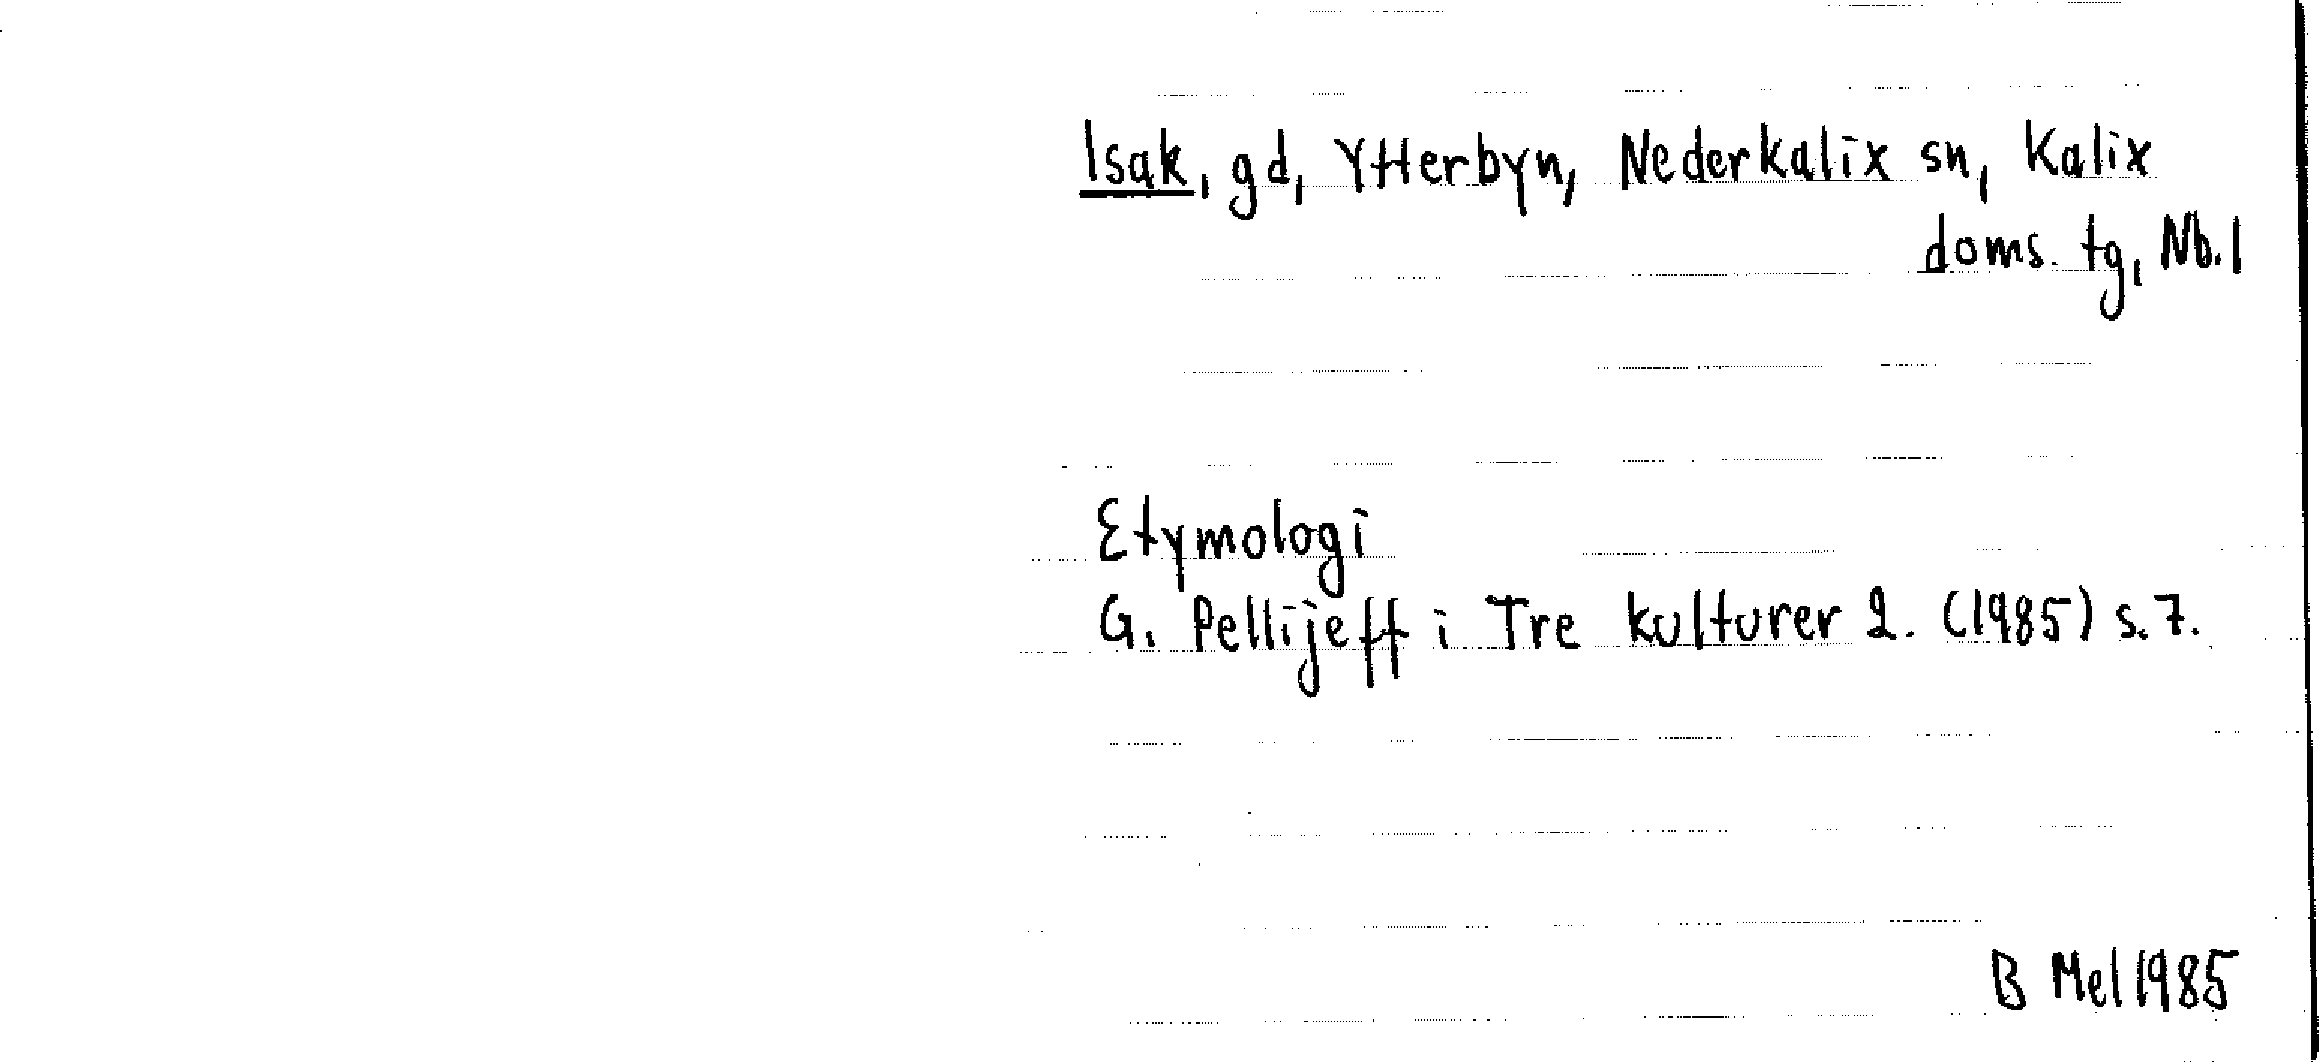 Isak, gd, Ytterbyn, Nederkalix sn, Kalix
doms. tg, Nb.l
Etymologi
G. Pellijeff i Tre kulturer 2. (1985) s.7.
B Mel 1985